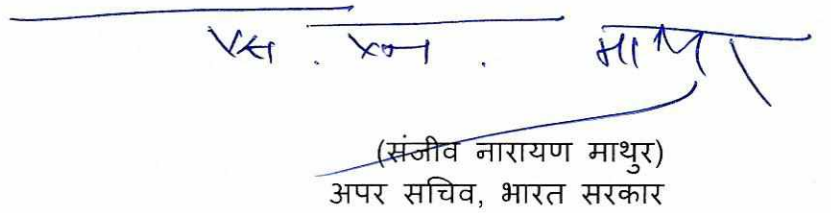 एस. एन. माथुर
(संजीव नारायण माथुर)
अपर सचिव, भारत सरकार